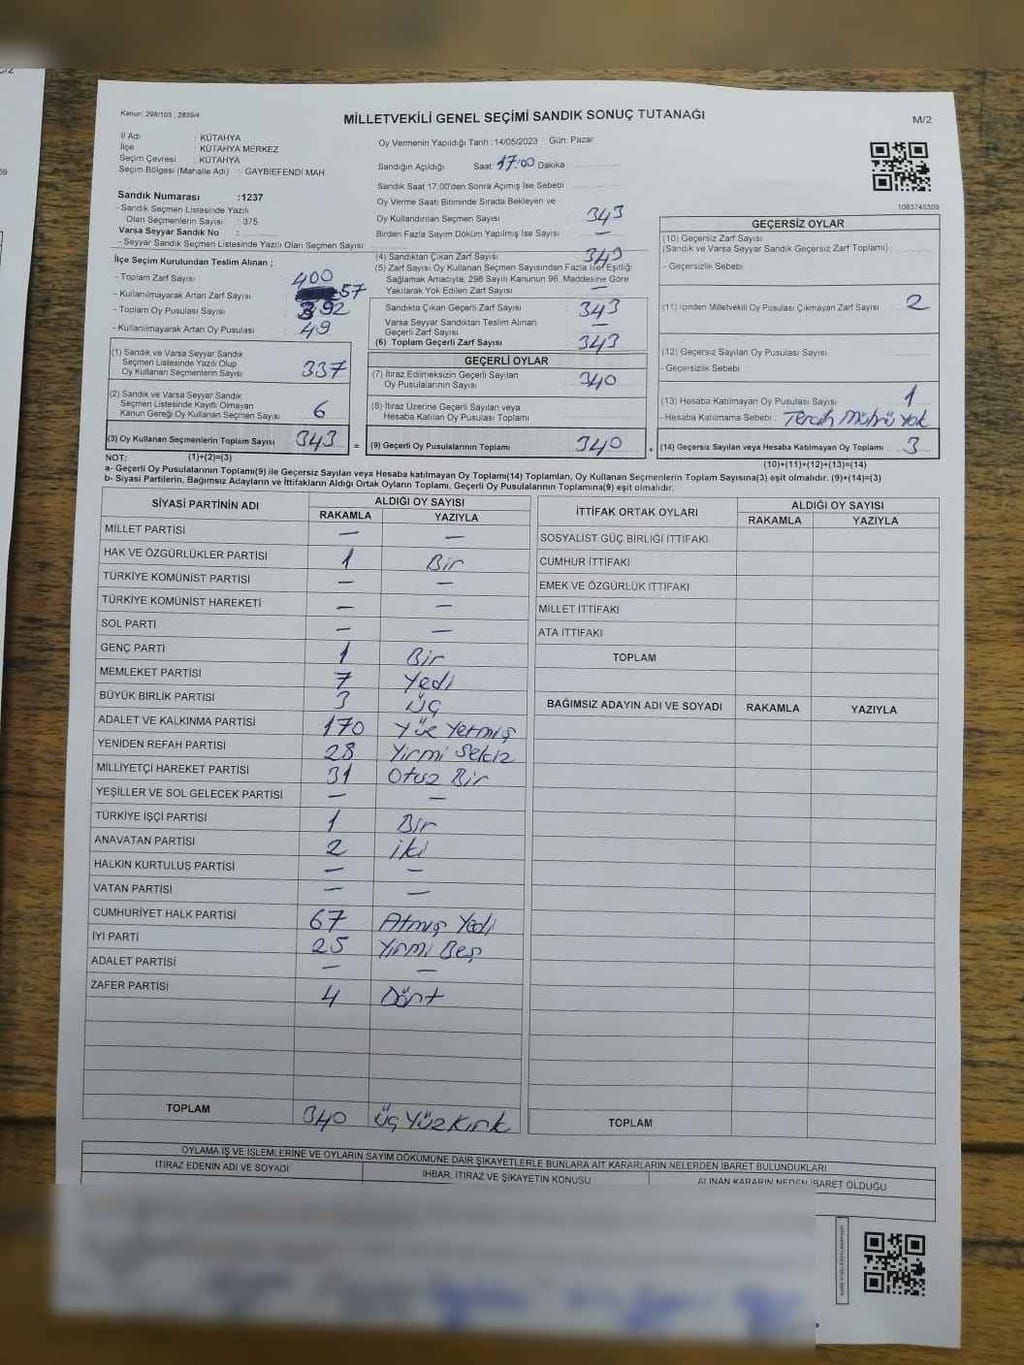 Kanun: 298/105 , 2839/4
MİLLETVEKİLİ GENEL SEÇİMİ SANDIK SONUÇ TUTANAĞI
M/2
İl Adı : KÜTAHYA
İlçe : KÜTAHYA MERKEZ
Seçim Çevresi : KÜTAHYA
Seçim Bölgesi (Mahalle Adı) : GAYBİEFENDİ MAH
Oy Vermenin Yapıldığı Tarih :14/05/2023 Gün: Pazar
Sandığın Açıldığı Saat: 17:00 Dakika
Sandık Saat 17:00'den Sonra Açılmış İse Sebebi
Sandık Numarası :1237
- Sandık Seçmen Listesinde Yazılı
Olan Seçmenlerin Sayısı : 375
Varsa Seyyar Sandık No :
- Seyyar Sandık Seçmen Listesinde Yazılı Olan Seçmen Sayısı
Oy Verme Saati Bitiminde Sırada Bekleyen ve
Oy Kullandırılan Seçmen Sayısı 343
Birden Fazla Sayım Döküm Yapılmış İse Sayısı —
1083745309
İlçe Seçim Kurulundan Teslim Alınan ;
- Toplam Zarf Sayısı 400
- Kullanılmayarak Artan Zarf Sayısı 57
- Toplam Oy Pusulası Sayısı 392
- Kullanılmayarak Artan Oy Pusulası 49
(1) Sandık ve Varsa Seyyar Sandık
Seçmen Listesinde Yazılı Olup
Oy Kullanan Seçmenlerin Sayısı 337
(2) Sandık ve Varsa Seyyar Sandık
Seçmen Listesinde Kayıtlı Olmayan
Kanun Gereği Oy Kullanan Seçmen Sayısı 6
(3) Oy Kullanan Seçmenlerin Toplam Sayısı 343 =
(4) Sandıktan Çıkan Zarf Sayısı 343
(5) Zarf Sayısı Oy Kullanan Seçmen Sayısından Fazla İse, Eşitliği
Sağlamak Amacıyla, 298 Sayılı Kanunun 98. Maddesine Göre
Yakılarak Yok Edilen Zarf Sayısı —
Sandıkta Çıkan Geçerli Zarf Sayısı 343
Varsa Seyyar Sandıktan Teslim Alınan
Geçerli Zarf Sayısı —
(6) Toplam Geçerli Zarf Sayısı 343
GEÇERLİ OYLAR
(7) İtiraz Edilmeksizin Geçerli Sayılan
Oy Pusulalarının Sayısı 340
(8) İtiraz Üzerine Geçerli Sayılan veya
Hesaba Katılan Oy Pusulası Toplamı
(9) Geçerli Oy Pusulalarının Toplamı 340 +
GEÇERSİZ OYLAR
(10) Geçersiz Zarf Sayısı
(Sandık ve Varsa Seyyar Sandık Geçersiz Zarf Toplamı) :
- Geçersizlik Sebebi :
(11) İçinden Milletvekili Oy Pusulası Çıkmayan Zarf Sayısı 2
(12) Geçersiz Sayılan Oy Pusulası Sayısı
- Geçersizlik Sebebi :
(13) Hesaba Katılmayan Oy Pusulası Sayısı 1
- Hesaba Katılmama Sebebi : Tercih Mührü Yok
(14) Geçersiz Sayılan veya Hesaba Katılmayan Oy Toplamı 3
NOT: (1)+(2)=(3)
(10)+(11)+(12)+(13)=(14)
a- Geçerli Oy Pusulalarının Toplamı(9) ile Geçersiz Sayılan veya Hesaba katılmayan Oy Toplamı(14) Toplamları, Oy Kullanan Seçmenlerin Toplam Sayısına(3) eşit olmalıdır. (9)+(14)=(3)
b- Siyasi Partilerin, Bağımsız Adayların ve İttifakların Aldığı Ortak Oyların Toplamı, Geçerli Oy Pusulalarının Toplamına(9) eşit olmalıdır.
SİYASİ PARTİNİN ADI ALDIĞI OY SAYISI
RAKAMLA YAZIYLA
MİLLET PARTİSİ — —
HAK VE ÖZGÜRLÜKLER PARTİSİ 1 Bir
TÜRKİYE KOMÜNİST PARTİSİ — —
TÜRKİYE KOMÜNİST HAREKETİ — —
SOL PARTİ — —
GENÇ PARTİ 1 Bir
MEMLEKET PARTİSİ 7 Yedi
BÜYÜK BİRLİK PARTİSİ 3 Üç
ADALET VE KALKINMA PARTİSİ 170 Yüz Yetmiş
YENİDEN REFAH PARTİSİ 28 Yirmi Sekiz
MİLLİYETÇİ HAREKET PARTİSİ 31 Otuz Bir
YEŞİLLER VE SOL GELECEK PARTİSİ — —
TÜRKİYE İŞÇİ PARTİSİ 1 Bir
ANAVATAN PARTİSİ 2 iki
HALKIN KURTULUŞ PARTİSİ — —
VATAN PARTİSİ — —
CUMHURİYET HALK PARTİSİ 67 Atmış Yedi
İYİ PARTİ 25 Yirmi Beş
ADALET PARTİSİ — —
ZAFER PARTİSİ 4 Dört
TOPLAM 340 üç Yüz Kırk
İTTİFAK ORTAK OYLARI ALDIĞI OY SAYISI
RAKAMLA YAZIYLA
SOSYALİST GÜÇ BİRLİĞİ İTTİFAKI
CUMHUR İTTİFAKI
EMEK VE ÖZGÜRLÜK İTTİFAKI
MİLLET İTTİFAKI
ATA İTTİFAKI
TOPLAM
BAĞIMSIZ ADAYIN ADI VE SOYADI RAKAMLA YAZIYLA
TOPLAM
OYLAMA İŞ VE İŞLEMLERİNE VE OYLARIN SAYIM DÖKÜMÜNE DAİR ŞİKAYETLERLE BUNLARA AİT KARARLARIN NELERDEN İBARET BULUNDUKLARI
İTİRAZ EDENİN ADI VE SOYADI İHBAR, İTİRAZ VE ŞİKAYETİN KONUSU ALINAN KARARIN NEDEN İBARET OLDUĞU